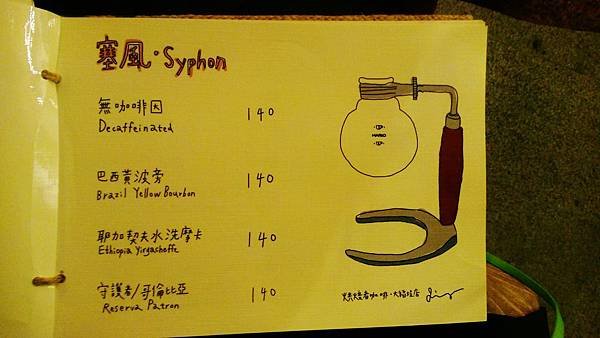 塞風·Syphon
無咖啡因 140
Decaffeinated
巴西黃波旁 140
Brazil Yellow Bourbon
耶加契夫水洗摩卡 140
Ethiopia Yirgacheffe
守護者/哥倫比亞 140
Reserva Patron
HARIO
烘焙者咖啡·大稻埕店